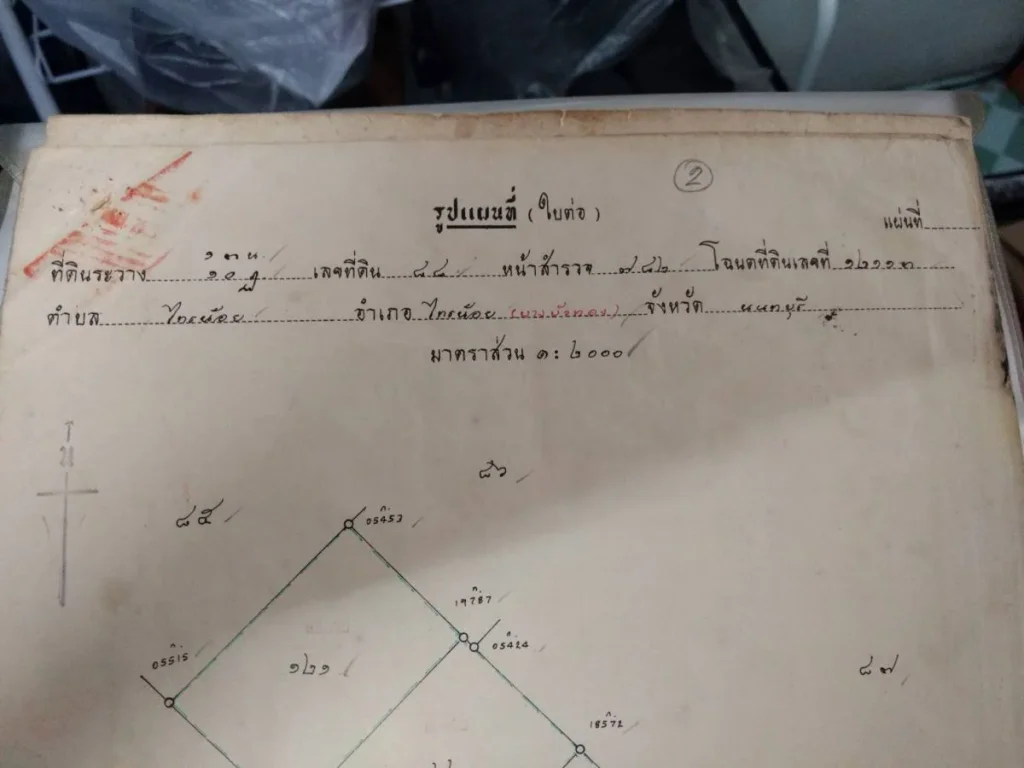 ๒
รูปแผนที่ (ใบต่อ)
แผ่นที่
ที่ดินระวาง ๑๓ น. ๑๐ ฎ. เลขที่ดิน ๘๘ หน้าสำรวจ ๗๘๒ โฉนดที่ดินเลขที่ ๑๒๑๑๓
ตำบล ไทรน้อย อำเภอ ไทรน้อย (บางบัวทอง) จังหวัด นนทบุรี
มาตราส่วน ๑ : ๒๐๐๐
น
๘๖
๘๕
ก 05453
ก 19787
ก 05424
ก 05515
๑๒๑
๘๗
ก 18572